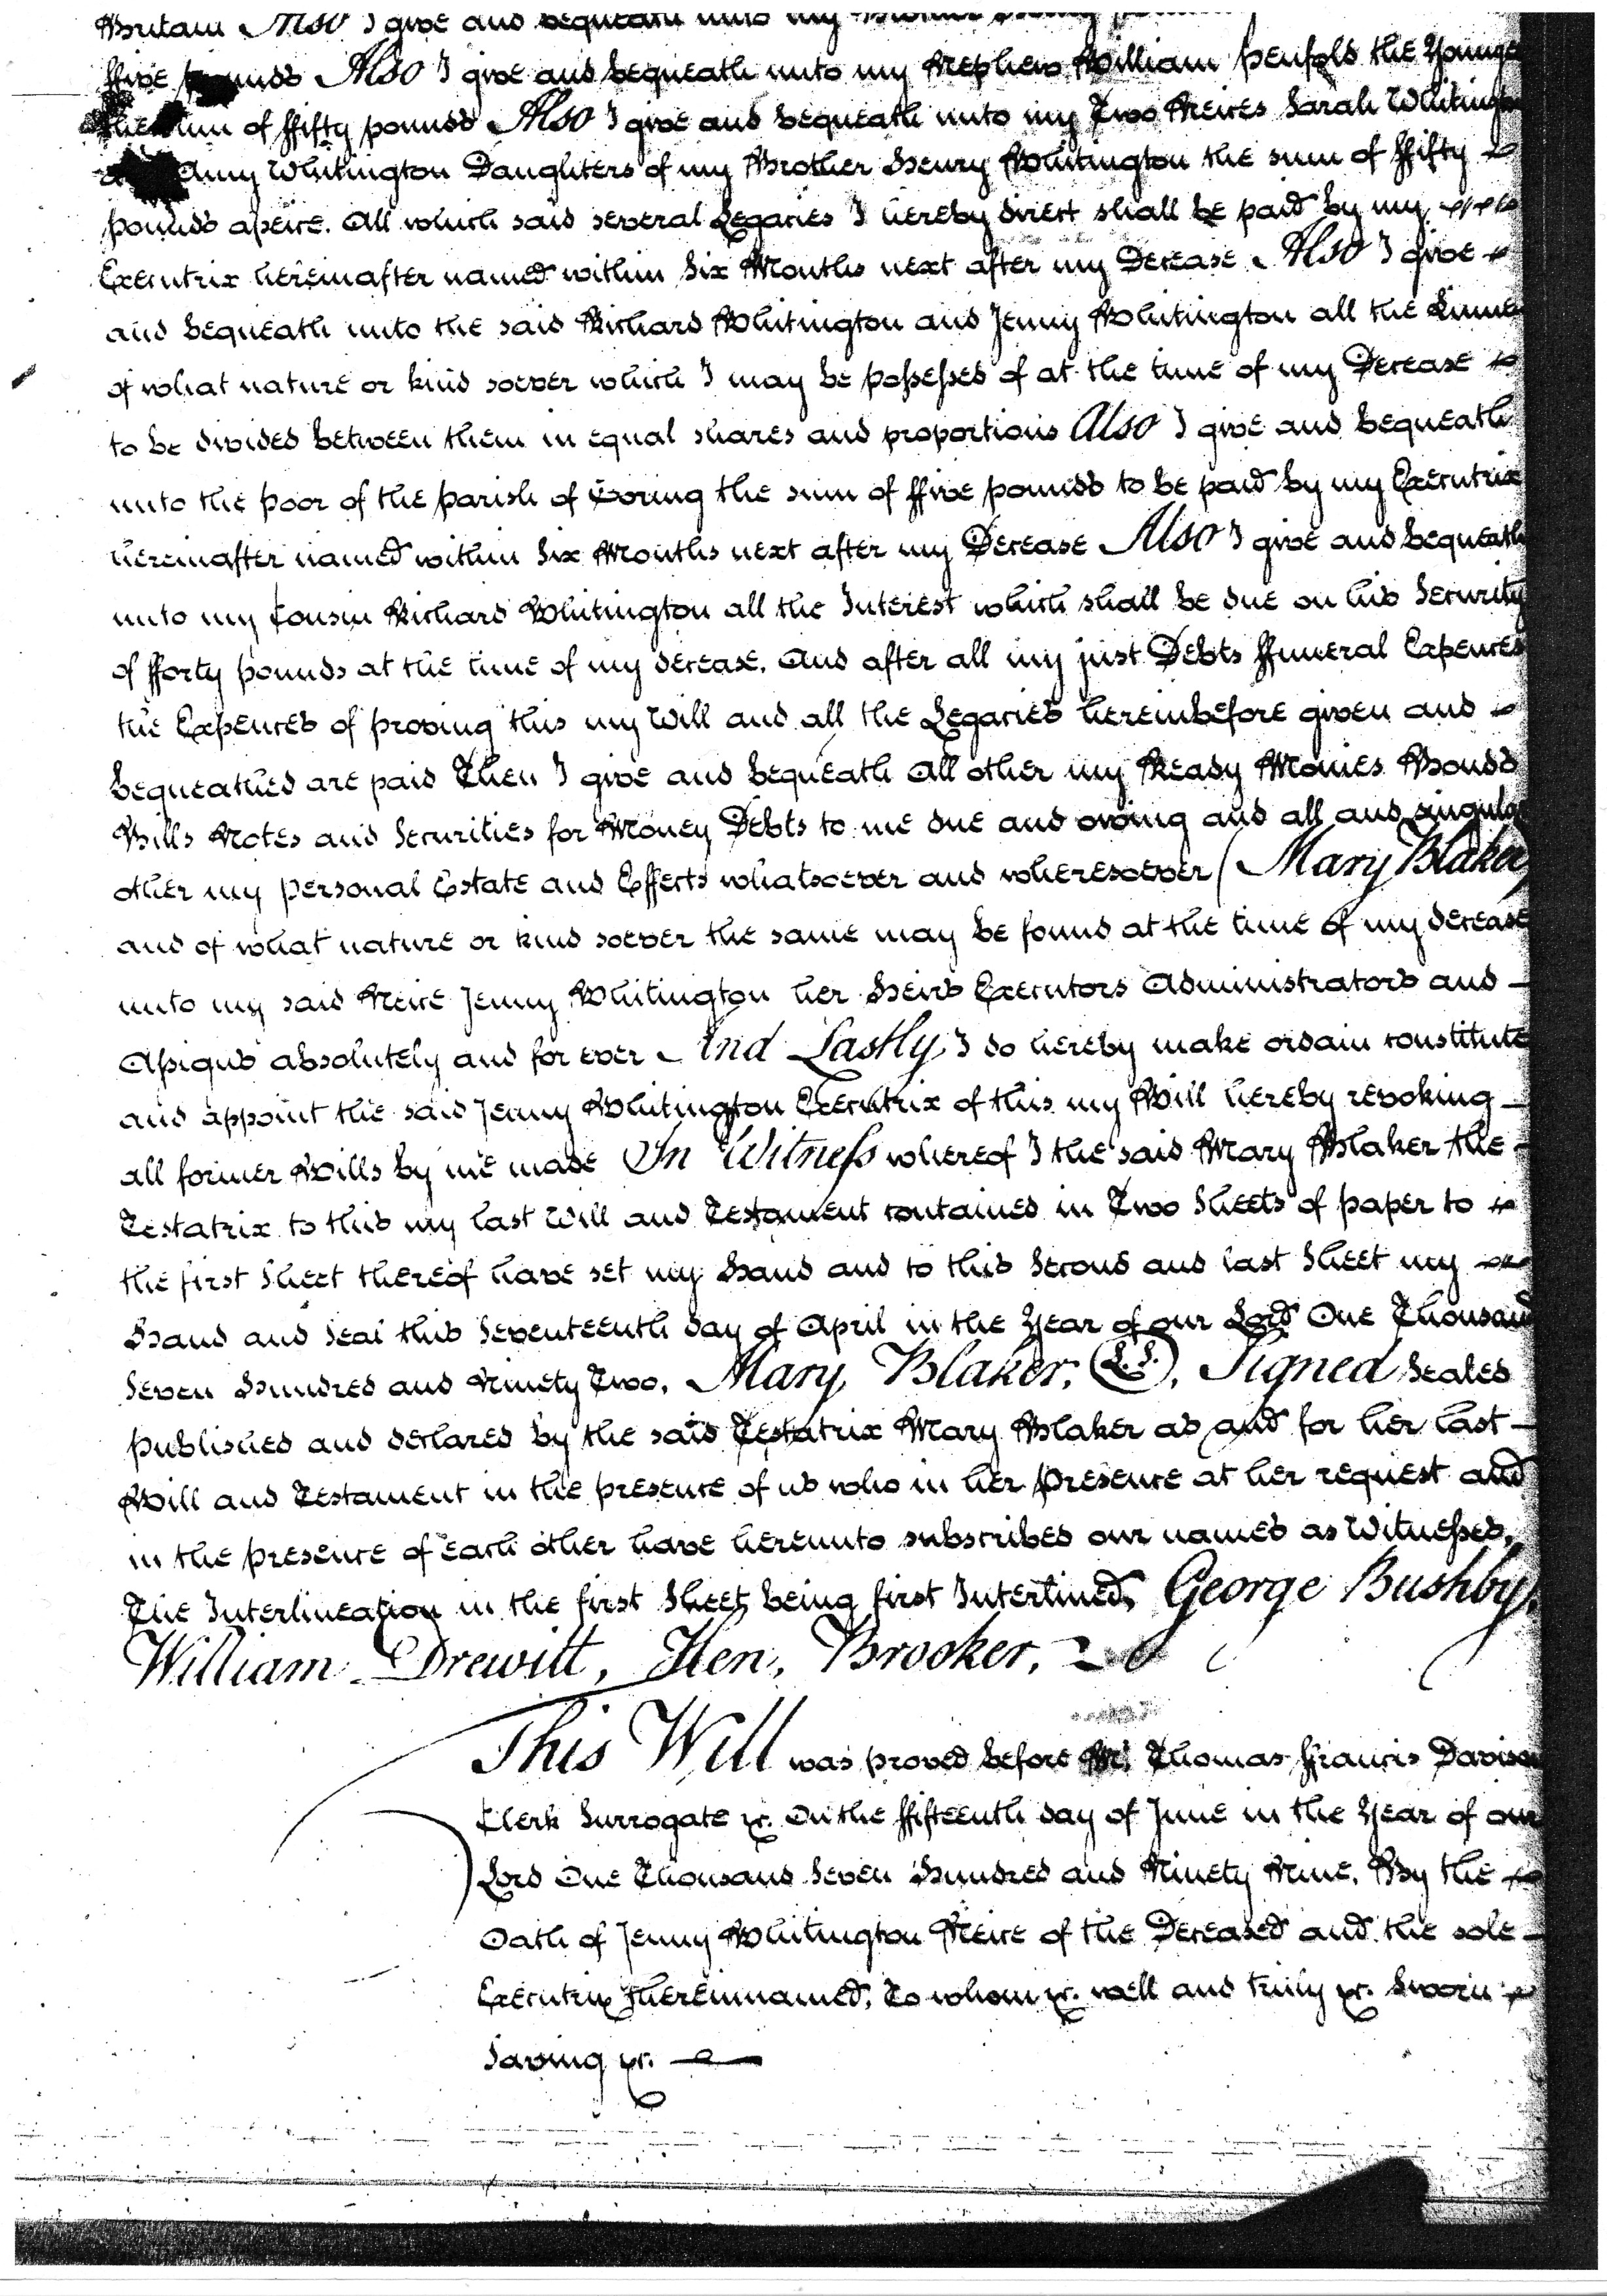 Britain Also I give and bequeath unto my Brother
ffive pounds Also I give and bequeath unto my Nephew William Penfold the Younge
the sum of ffifty pounds Also I give and bequeath unto my Two Neices Sarah Whitington
Anny Whitington Daughters of my Brother Henry Whitington the sum of ffifty
pounds apeice. All which said several Legacies I hereby direct shall be paid by my
Executrix hereinafter named within Six Months next after my Decease Also I give
and bequeath unto the said Richard Whitington and Jenny Whitington all the Linnen
of what nature or kind soever which I may be possessed of at the time of my Decease
to be divided between them in equal shares and proportions Also I give and bequeath
unto the poor of the parish of Goring the sum of ffive pounds to be paid by my Executrix
hereinafter named within Six Months next after my Decease Also I give and bequeath
unto my Cousin Richard Whitington all the Interest which shall be due on his Security
of fforty pounds at the time of my decease. And after all my just Debts ffuneral Expences
the Expences of proving this my Will and all the Legacies hereinbefore given and
bequeathed are paid Then I give and bequeath All other my Ready Monies Bonds
Bills Notes and Securities for Money Debts to me due and owing and all and singular
other my personal Estate and Effects whatsoever and wheresoever (Mary Blaker)
and of what nature or kind soever the same may be found at the time of my decease
unto my said Neice Jenny Whitington her Heirs Executors Administrators and
Assigns absolutely and for ever And Lastly I do hereby make ordain constitute
and appoint the said Jenny Whitington Executrix of this my Will hereby revoking
all former Wills by me made In Witness whereof I the said Mary Blaker the
Testatrix to this my last Will and Testament contained in Two Sheets of paper to
the first Sheet thereof have set my Hand and to this Second and last Sheet my
Hand and Seal this Seventeenth day of April in the Year of our Lord One Thousand
Seven Hundred and Ninety Two. Mary Blaker. (L.S.). Signed Sealed
published and declared by the said Testatrix Mary Blaker as and for her last
Will and Testament in the presence of us who in her presence at her request and
in the presence of each other have hereunto subscribed our names as Witnesses.
The Interlineation in the first Sheet being first Interlined, George Bushby,
William Drewitt, Hen. Brooker.
This Will was proved before Mr. Thomas ffrancis Davison
Clerk Surrogate &c. On the ffifteenth day of June in the Year of our
Lord One Thousand Seven Hundred and Ninety Nine. By the
Oath of Jenny Whitington Neice of the Deceased and the sole
Executrix thereinnamed, To whom &c. well and truly &c. Sworn
Saving &c.